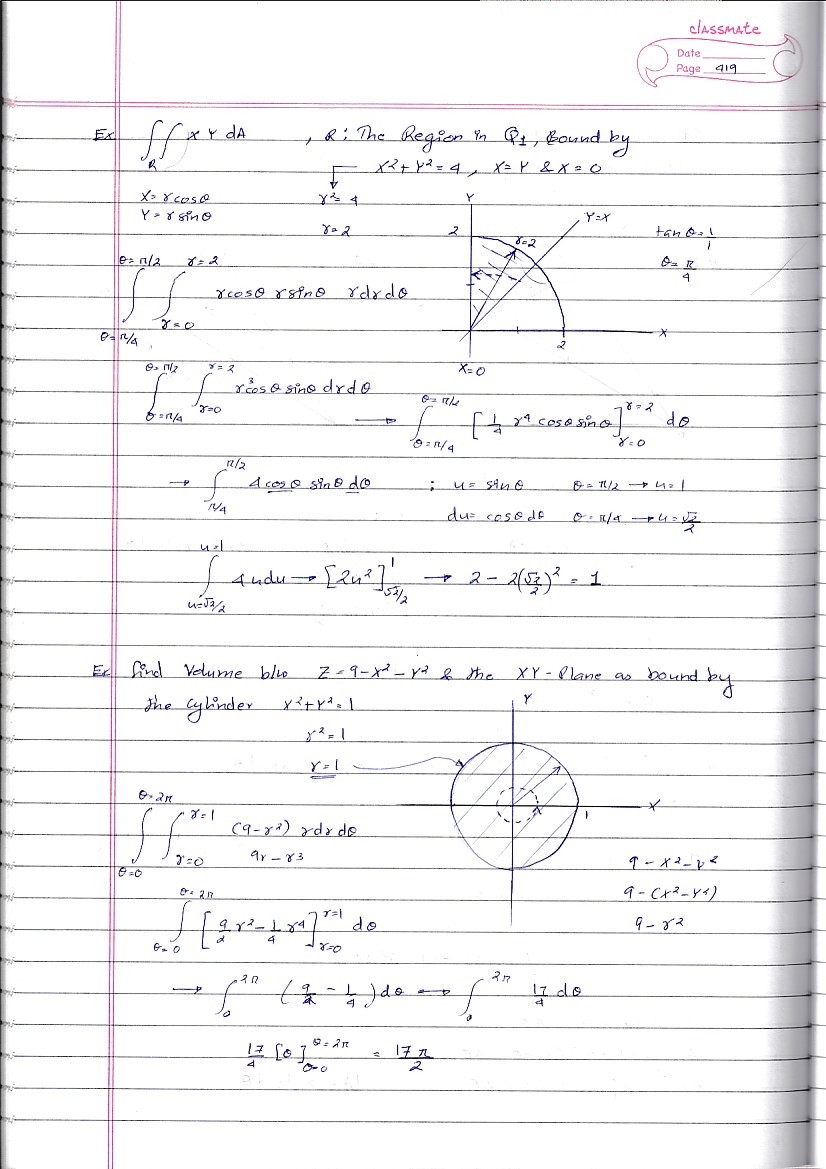 classmate
Date
Page 419
Ex ∬_R X Y dA , R: The Region in Q1, Bound by
X² + Y² = 4, X = Y & X = 0
X = r cos θ
Y = r sin θ
r² = 4
r = 2
Y
2
r = 2
Y = X
X
2
X = 0
tan θ = 1/1
θ = π/4
∫_{θ=π/4}^{θ=π/2} ∫_{r=0}^{r=2} r cos θ r sin θ r dr dθ
∫_{θ=π/4}^{θ=π/2} ∫_{r=0}^{r=2} r³ cos θ sin θ dr dθ
→ ∫_{θ=π/4}^{θ=π/2} [1/4 r⁴ cos θ sin θ]_{r=0}^{r=2} dθ
→ ∫_{π/4}^{π/2} 4 cos θ sin θ dθ ; u = sin θ θ = π/2 → u = 1
du = cos θ dθ θ = π/4 → u = √2/2
∫_{u=√2/2}^{u=1} 4u du → [2u²]_{√2/2}^{1} → 2 - 2(√2/2)² = 1
Ex find Volume b/w Z = 9 - X² - Y² & the XY-Plane as bound by
the cylinder X² + Y² = 1
r² = 1
r = 1
Y
X
1
∫_{θ=0}^{θ=2π} ∫_{r=0}^{r=1} (9 - r²) r dr dθ
9r - r³
9 - X² - Y²
9 - (X² - Y²)
9 - r²
∫_{θ=0}^{θ=2π} [9/2 r² - 1/4 r⁴]_{r=0}^{r=1} dθ
→ ∫_0^{2π} (9/2 - 1/4) dθ → ∫_0^{2π} 17/4 dθ
17/4 [θ]_{θ=0}^{θ=2π} = 17π/2